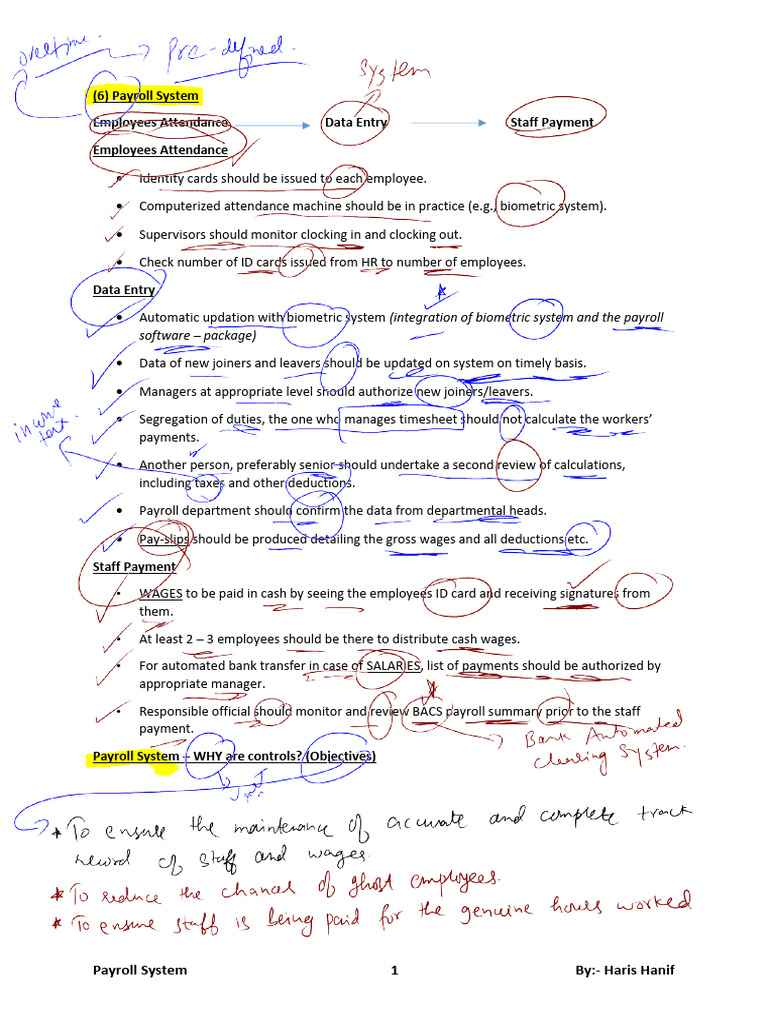 overtime.
Pre-defined.
system
(6) Payroll System
Employees Attendance Data Entry Staff Payment
Employees Attendance
• Identity cards should be issued to each employee.
• Computerized attendance machine should be in practice (e.g., biometric system).
• Supervisors should monitor clocking in and clocking out.
• Check number of ID cards issued from HR to number of employees.
Data Entry
• Automatic updation with biometric system (integration of biometric system and the payroll
software – package)
• Data of new joiners and leavers should be updated on system on timely basis.
• Managers at appropriate level should authorize new joiners/leavers.
income
tax
• Segregation of duties, the one who manages timesheet should not calculate the workers’
payments.
• Another person, preferably senior should undertake a second review of calculations,
including taxes and other deductions.
• Payroll department should confirm the data from departmental heads.
• Pay-slips should be produced detailing the gross wages and all deductions etc.
Staff Payment
• WAGES to be paid in cash by seeing the employees ID card and receiving signatures from
them.
• At least 2 – 3 employees should be there to distribute cash wages.
• For automated bank transfer in case of SALARIES, list of payments should be authorized by
appropriate manager.
• Responsible official should monitor and review BACS payroll summary prior to the staff
payment.
Bank Automated
Clearing System.
Payroll System – WHY are controls? (Objectives)
* To ensure the maintenance of accurate and complete track
record of staff and wages.
* To reduce the chances of ghost employees.
* To ensure staff is being paid for the genuine hours worked
Payroll System 1 By:- Haris Hanif